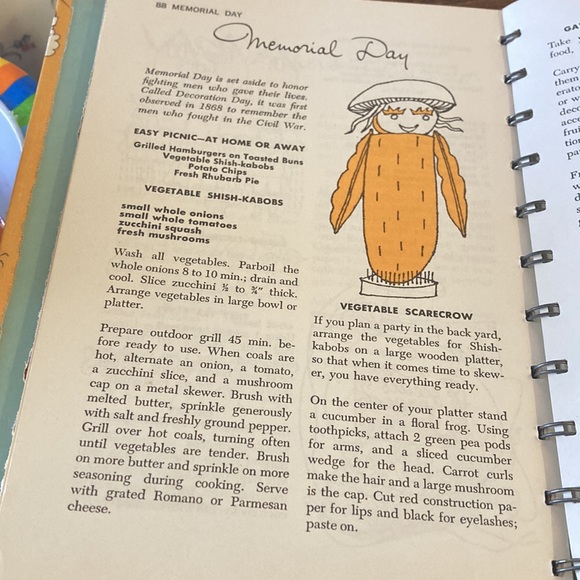 88 MEMORIAL DAY
Memorial Day
Memorial Day is set aside to honor
fighting men who gave their lives.
Called Decoration Day, it was first
observed in 1868 to remember the
men who fought in the Civil War.
EASY PICNIC—AT HOME OR AWAY
Grilled Hamburgers on Toasted Buns
Vegetable Shish-kabobs
Potato Chips
Fresh Rhubarb Pie
VEGETABLE SHISH-KABOBS
small whole onions
small whole tomatoes
zucchini squash
fresh mushrooms
Wash all vegetables. Parboil the
whole onions 8 to 10 min.; drain and
cool. Slice zucchini ½ to ¾" thick.
Arrange vegetables in large bowl or
platter.
Prepare outdoor grill 45 min. be-
fore ready to use. When coals are
hot, alternate an onion, a tomato,
a zucchini slice, and a mushroom
cap on a metal skewer. Brush with
melted butter, sprinkle generously
with salt and freshly ground pepper.
Grill over hot coals, turning often
until vegetables are tender. Brush
on more butter and sprinkle on more
seasoning during cooking. Serve
with grated Romano or Parmesan
cheese.
VEGETABLE SCARECROW
If you plan a party in the back yard,
arrange the vegetables for Shish-
kabobs on a large wooden platter,
so that when it comes to skew-
er, you have everything ready.
On the center of your platter stand
a cucumber in a floral frog. Using
toothpicks, attach 2 green pea pods
for arms, and a sliced cucumber
wedge for the head. Carrot curls
make the hair and a large mushroom
is the cap. Cut red construction pa-
per for lips and black for eyelashes;
paste on.
Take
food,
Carry
them
or w